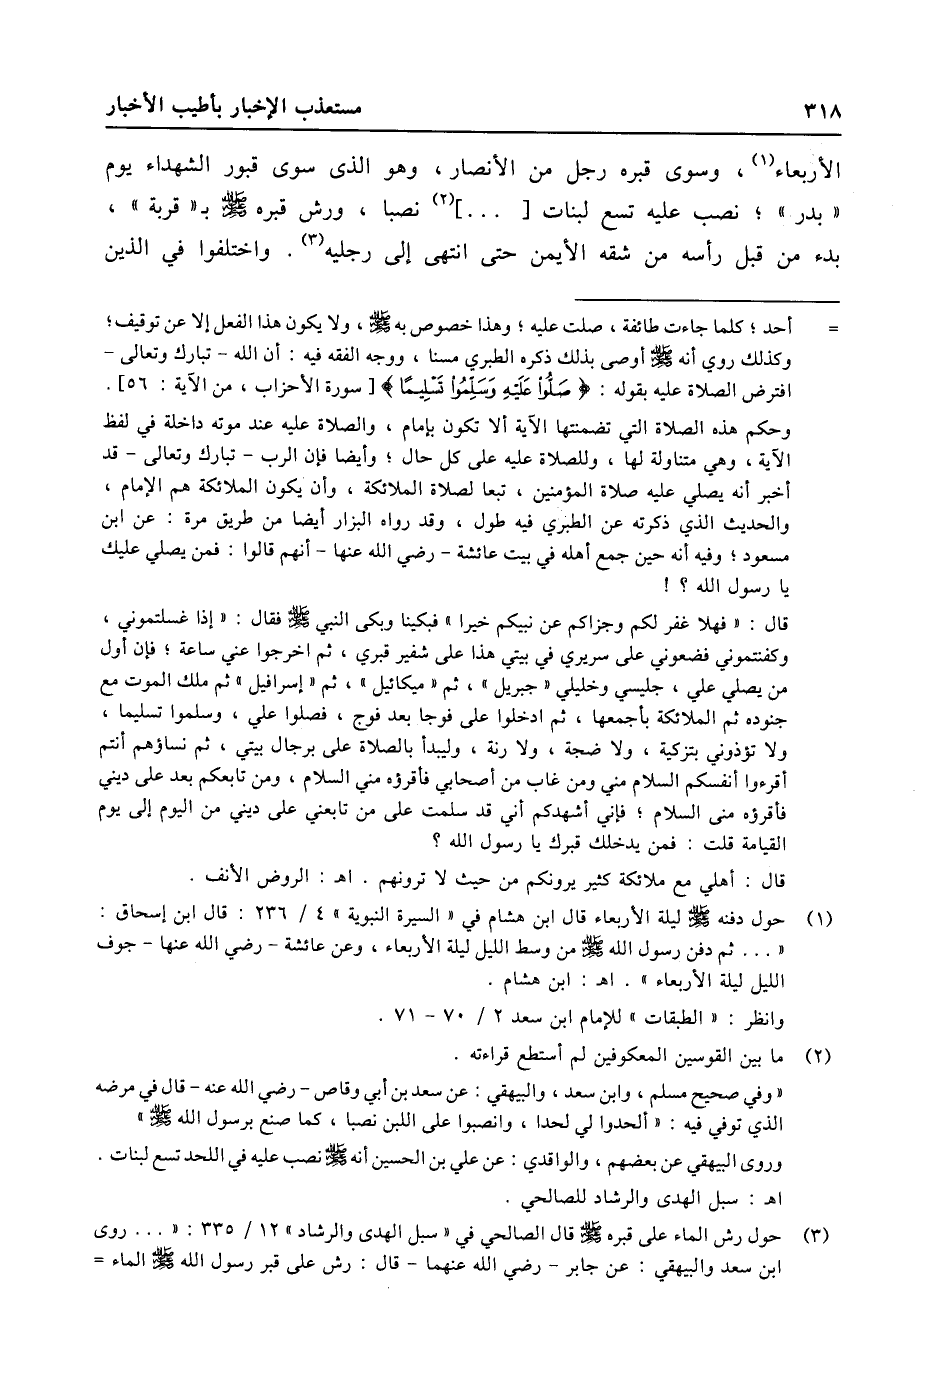 ٣١٨ مستعذب الإخبار بأطيب الأخبار
الأربعاء(١) ، وسوى قبره رجل من الأنصار ، وهو الذى سوى قبور الشهداء يوم
« بدر » ؛ نصب عليه تسع لبنات [ ... ](٢) نصبا ، ورش قبره ﷺ بـ« قربة » ،
بدء من قبل رأسه من شقه الأيمن حتى انتهى إلى رجليه(٣) . واختلفوا في الذين
= أحد ؛ كلما جاءت طائفة ، صلت عليه ؛ وهذا خصوص به ﷺ ، ولا يكون هذا الفعل إلا عن توقيف؛
وكذلك روي أنه ﷺ أوصى بذلك ذكره الطبري مسنا ، ووجه الفقه فيه : أن الله - تبارك وتعالى -
افترض الصلاة عليه بقوله : ﴿ صَلُّوا۟ عَلَيْهِ وَسَلِّمُوا۟ تَسْلِيمًا ﴾ [ سورة الأحزاب ، من الآية : ٥٦] .
وحكم هذه الصلاة التي تضمنتها الآية ألا تكون بإمام ، والصلاة عليه عند موته داخلة في لفظ
الآية ، وهي متناولة لها ، وللصلاة عليه على كل حال ؛ وأيضا فإن الرب - تبارك وتعالى - قد
أخبر أنه يصلي عليه صلاة المؤمنين ، تبعا لصلاة الملائكة ، وأن يكون الملائكة هم الإمام ،
والحديث الذي ذكرته عن الطبري فيه طول ، وقد رواه البزار أيضا من طريق مرة : عن ابن
مسعود ؛ وفيه أنه حين جمع أهله في بيت عائشة - رضي الله عنها - أنهم قالوا : فمن يصلي عليك
يا رسول الله ؟ !
قال : « فهلا غفر لكم وجزاكم عن نبيكم خيرا » فبكينا وبكى النبي ﷺ فقال : « إذا غسلتموني ،
وكفنتموني فضعوني على سريري في بيتي هذا على شفير قبري ، ثم اخرجوا عني ساعة ؛ فإن أول
من يصلي علي ، جليسي وخليلي « جبريل » ، ثم « ميكائيل » ، ثم « إسرافيل » ثم ملك الموت مع
جنوده ثم الملائكة بأجمعها ، ثم ادخلوا على فوجا بعد فوج ، فصلوا علي ، وسلموا تسليما ،
ولا تؤذوني بتزكية ، ولا ضجة ، ولا رنة ، وليبدأ بالصلاة على برجال بيتي ، ثم نساؤهم أنتم
أقرءوا أنفسكم السلام مني ومن غاب من أصحابي فأقرؤه مني السلام ، ومن تابعكم بعد على ديني
فأقرؤه منى السلام ؛ فإني أشهدكم أني قد سلمت على من تابعني على ديني من اليوم إلى يوم
القيامة قلت : فمن يدخلك قبرك يا رسول الله ؟
قال : أهلي مع ملائكة كثير يرونكم من حيث لا ترونهم . اهـ : الروض الأنف .
(١) حول دفنه ﷺ ليلة الأربعاء قال ابن هشام في « السيرة النبوية » ٤ / ٢٣٦ : قال ابن إسحاق :
« ... ثم دفن رسول الله ﷺ من وسط الليل ليلة الأربعاء ، وعن عائشة - رضي الله عنها - جوف
الليل ليلة الأربعاء » . اهـ : ابن هشام .
وانظر : « الطبقات » للإمام ابن سعد ٢ / ٧٠ - ٧١ .
(٢) ما بين القوسين المعكوفين لم أستطع قراءته .
« وفي صحيح مسلم ، وابن سعد ، والبيهقي : عن سعد بن أبي وقاص - رضي الله عنه - قال في مرضه
الذي توفي فيه : « ألحدوا لي لحدا ، وانصبوا على اللبن نصبا ، كما صنع برسول الله ﷺ »
وروى البيهقي عن بعضهم ، والواقدي : عن علي بن الحسين أنه ﷺ نصب عليه في اللحد تسع لبنات .
اهـ : سبل الهدى والرشاد للصالحي .
(٣) حول رش الماء على قبره ﷺ قال الصالحي في « سبل الهدى والرشاد » ١٢ / ٣٣٥ : « ... روى
ابن سعد والبيهقي : عن جابر - رضي الله عنهما - قال : رش على قبر رسول الله ﷺ الماء =